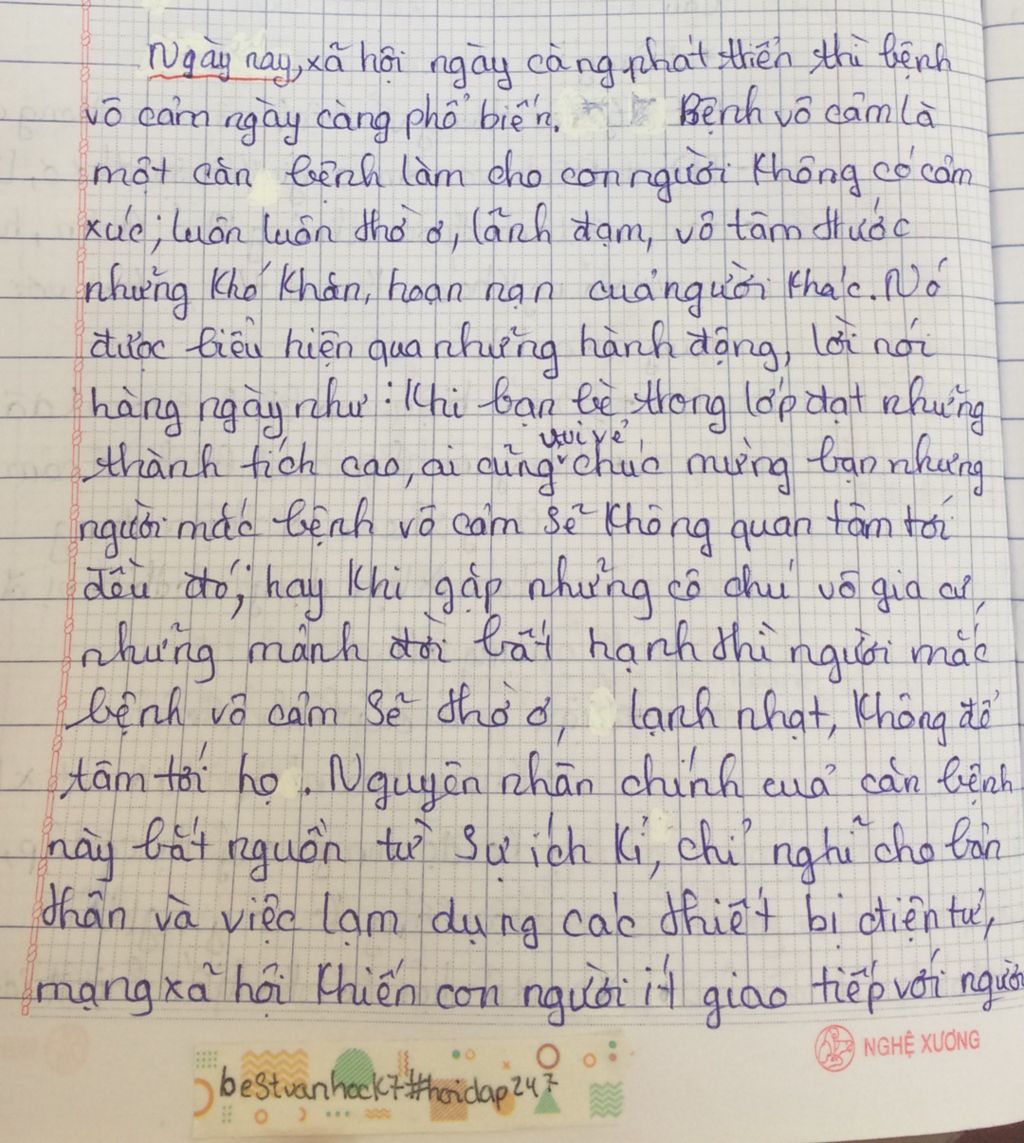 Ngày nay, xã hội ngày càng phát triển thì bệnh
vô cảm ngày càng phổ biến. Bệnh vô cảm là
một căn bệnh làm cho con người không có cảm
xúc; luôn luôn thờ ơ, lãnh đạm, vô tâm trước
những khó khăn, hoạn nạn của người khác. Nó
được biểu hiện qua những hành động, lời nói
hàng ngày như: Khi bạn bè trong lớp đạt những
vui vẻ,
thành tích cao, ai cũng chúc mừng bạn nhưng
người mắc bệnh vô cảm sẽ không quan tâm tới
đều đó; hay khi gặp những cô chú vô gia cư,
những mảnh đời bất hạnh thì người mắc
bệnh vô cảm sẽ thờ ơ, lạnh nhạt, không để
tâm tới họ. Nguyên nhân chính của căn bệnh
này bắt nguồn từ sự ích kỉ, chỉ nghĩ cho bản
thân và việc lạm dụng các thiết bị điện tử,
mạng xã hội khiến con người ít giao tiếp với người
NGHỆ XƯƠNG
bestvanhock7#hoidap247